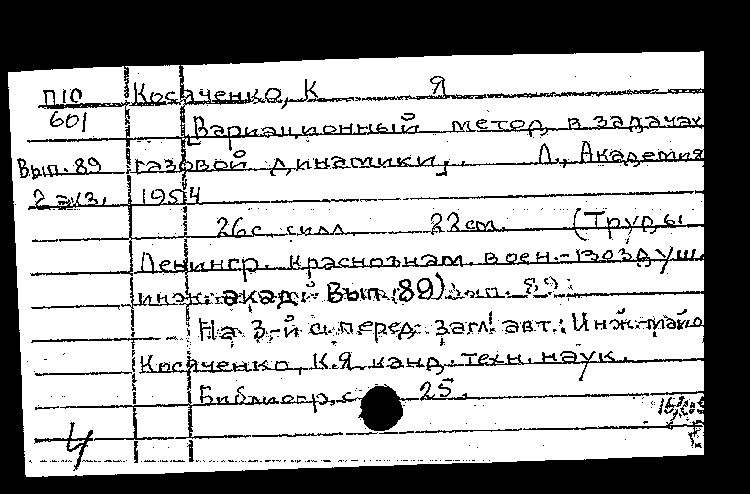 П10 Косяченко, К Я
601 [Вариационный метод в задачах
Вып. 89 газовой динамики]. Л., Академия
2 экз. 1954
26 с. с илл. 22 см. (Труды
Ленингр. краснознам. воен.-воздуш.
инж. акад. Вып. 89)
На 3-й с. перед загл. авт.: Инж-майо
Косяченко, К.Я. канд. техн. наук.
Библиогр. с 25.
4